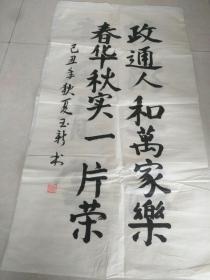 政通人和萬家樂
春华秋实一片荣
己丑年秋夏玉新书